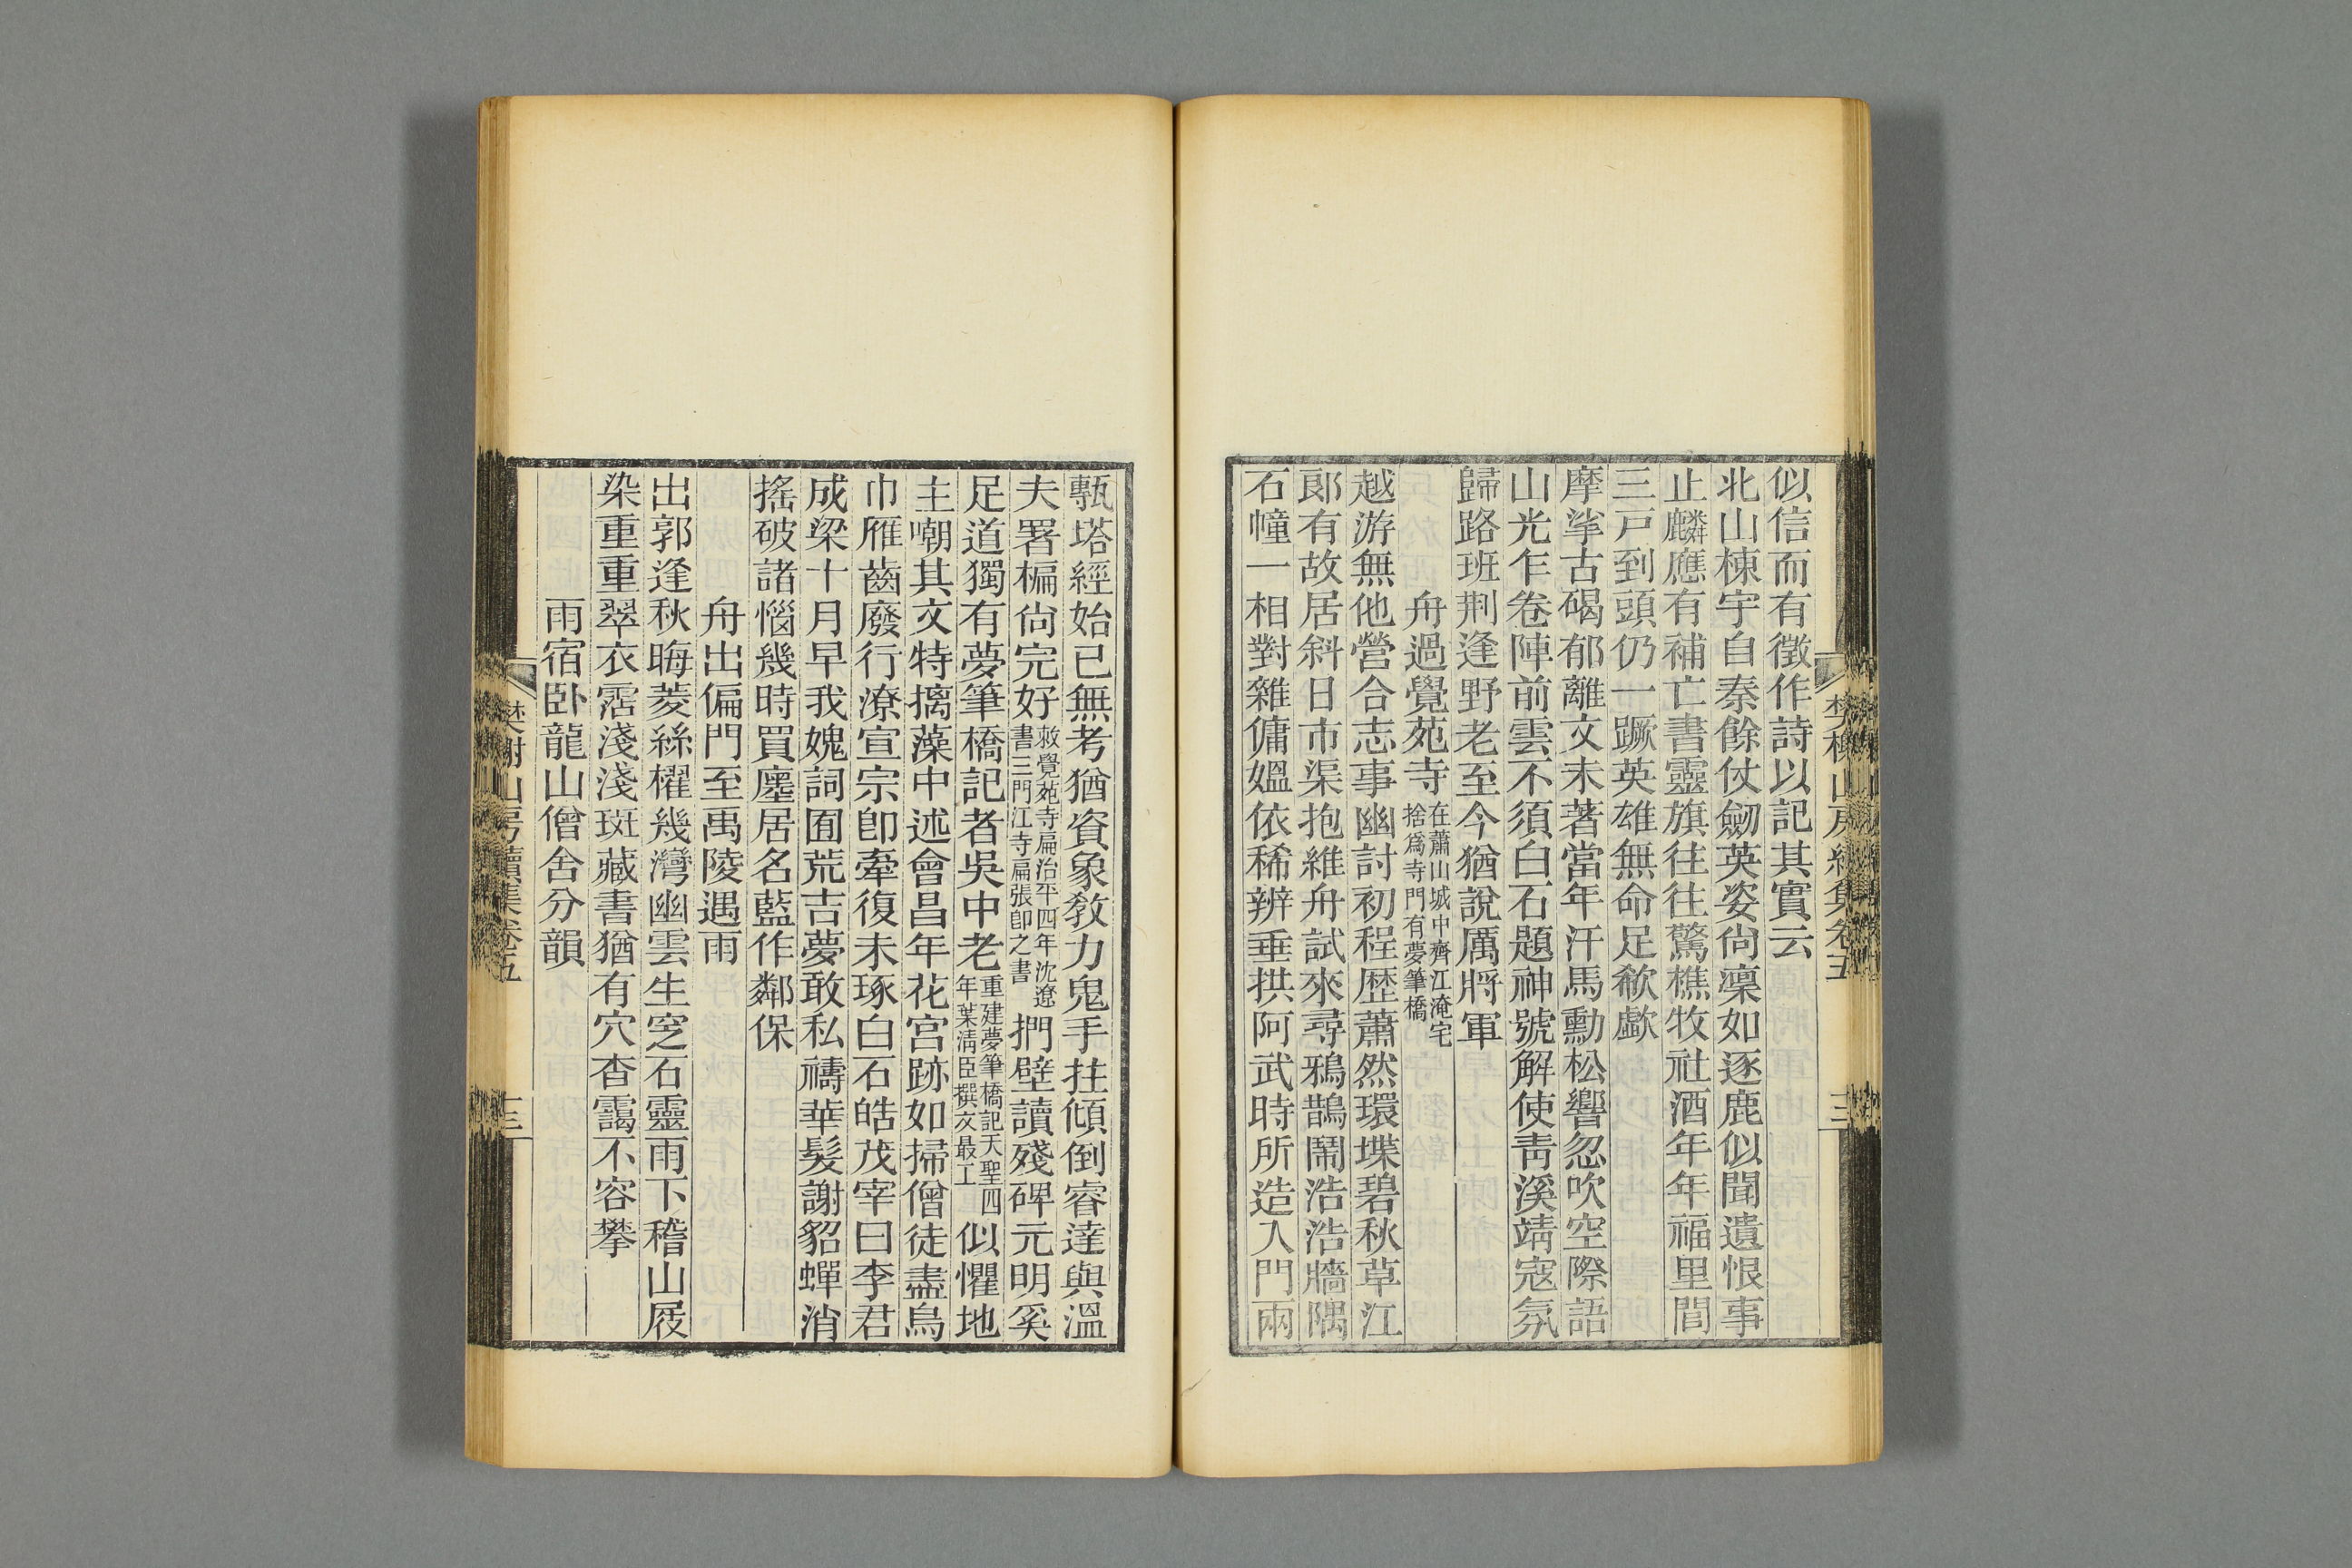 似信而有徵作詩以記其實云
北山棟宇自秦餘仗劒英姿尙凜如逐鹿似聞遺恨事
止麟應有補亡書靈旗往往驚樵牧社酒年年福里閭
三戸到頭仍一蹶英雄無命足欷歔
摩挲古碣郁離文未著當年汗馬勳松響忽吹空際語
山光乍卷陣前雲不須白石題神號解使靑溪靖寇氛
歸路班荆逢野老至今猶說厲將軍
舟過覺苑寺在蕭山城中齊江淹宅捨爲寺門有夢筆橋
越游無他營合志事幽討初程歷蕭然環堞碧秋草江
郞有故居斜日市渠抱維舟試來尋鴉鵲鬧浩浩牆隅
石幢一相對雜傭媼依稀辨垂拱阿武時所造入門兩
甎塔經始已無考猶資象敎力鬼手拄傾倒睿達與溫
夫署楄尙完好敕覺苑寺扁治平四年沈遼書三門江寺扁張卽之書捫壁讀殘碑元明奚
足道獨有夢筆橋記者吳中老重建夢筆橋記天聖四年葉淸臣撰文最工似懼地
主嘲其文特摛藻中述會昌年花宮跡如掃僧徒盡烏
巾雁齒廢行潦宣宗卽牽復未琢白石皓茂宰曰李君
成梁十月早我媿詞囿荒吉夢敢私禱華髮謝貂蟬消
搖破諸惱幾時買廛居名藍作鄰保
舟出偏門至禹陵遇雨
出郭逢秋晦菱絲櫂幾灣幽雲生窆石靈雨下稽山屐
染重重翠衣霑淺淺斑藏書猶有穴杳靄不容攀
雨宿卧龍山僧舍分韻
樊榭山房續集卷五
三